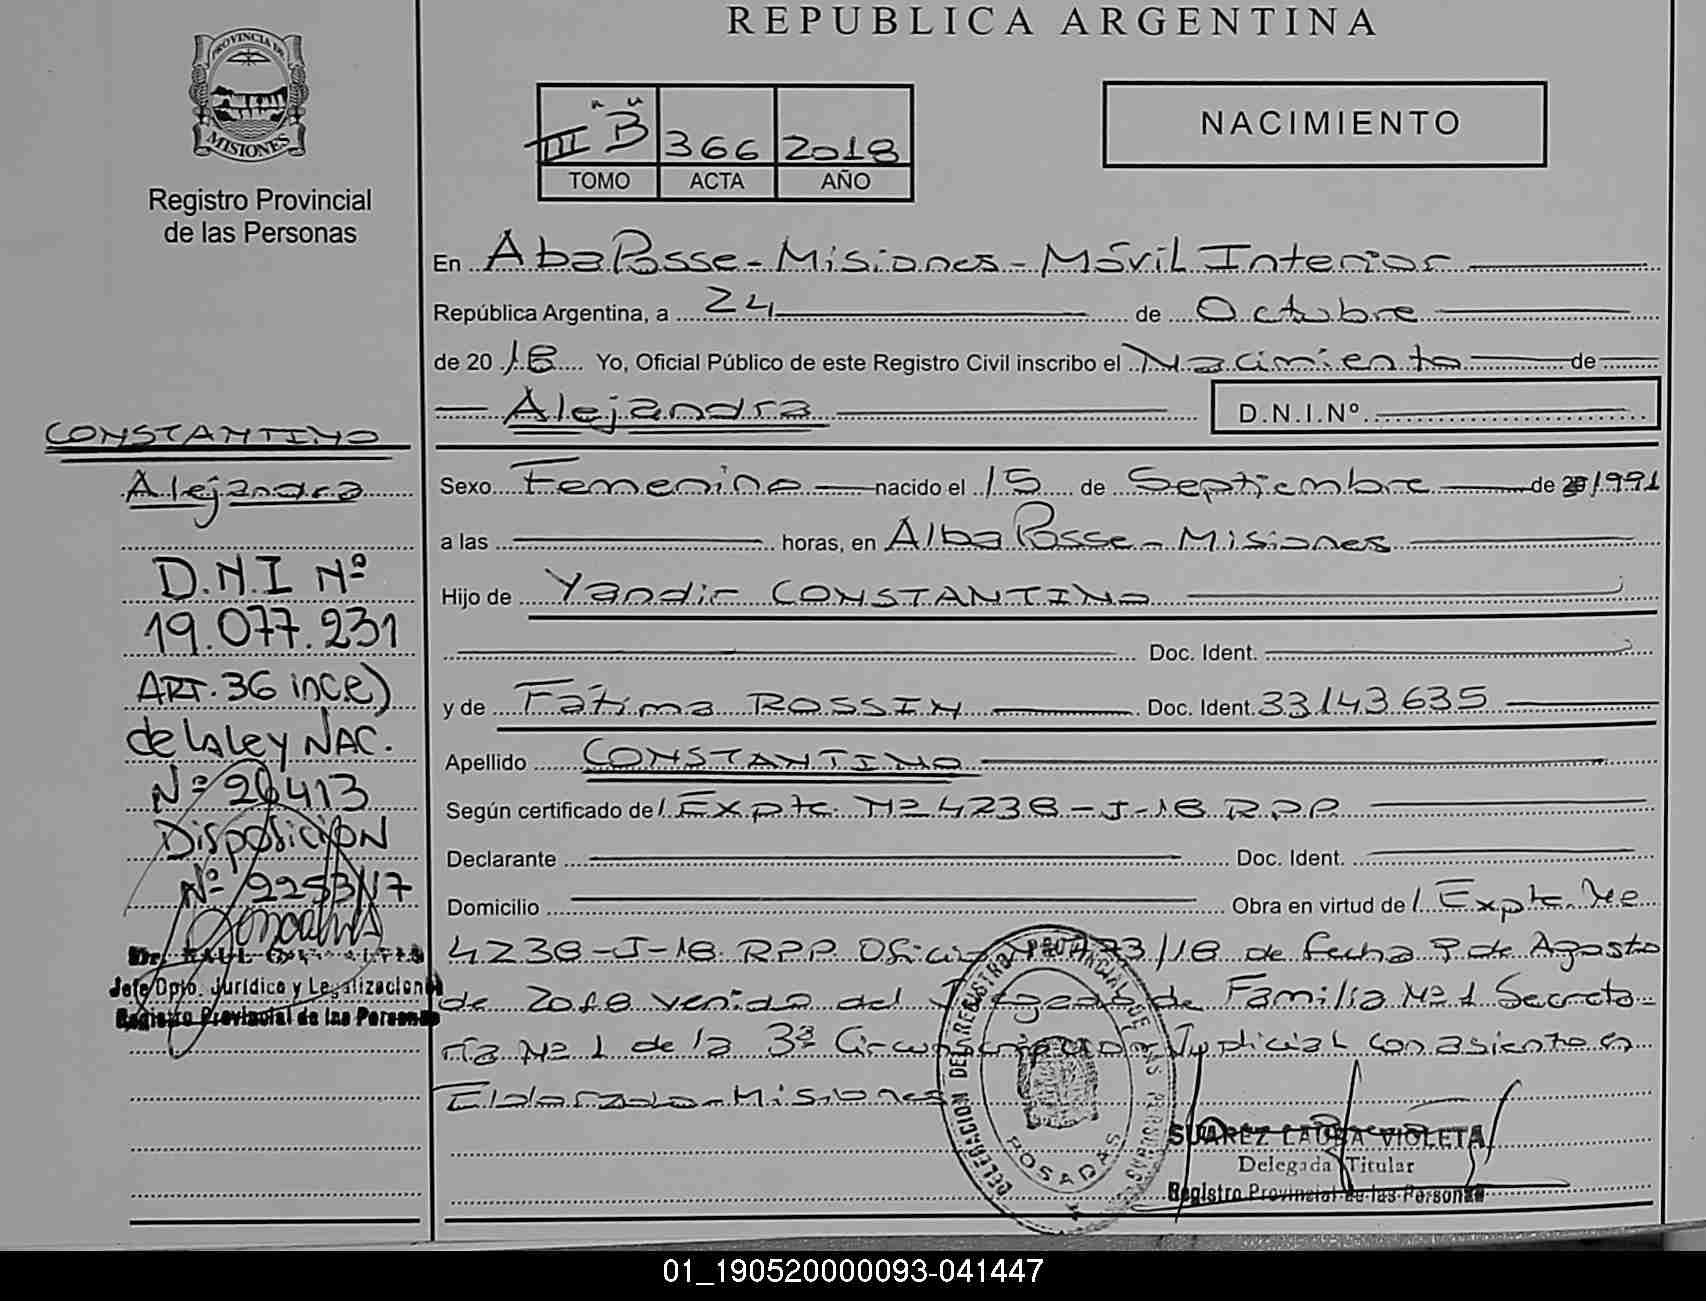 REPUBLICA ARGENTINA
PROVINCIA DE
MISIONES
Registro Provincial
de las Personas
III "B" 366 2018
TOMO ACTA AÑO
NACIMIENTO
En Aba Posse - Misiones - Móvil Interior
República Argentina, a 24 de Octubre
de 2018 Yo, Oficial Público de este Registro Civil inscribo el Nacimiento de
Alejandra D.N.I.Nº
Sexo Femenino nacido el 15 de Septiembre de 1991
a las horas, en Alba Posse - Misiones
Hijo de Yandir CONSTANTINO
Doc. Ident.
y de Fátima ROSSIN Doc. Ident. 33143.635
Apellido CONSTANTINO
Según certificado de / Expte. Nº 4238-J-18 R.P.P.
Declarante Doc. Ident.
Domicilio Obra en virtud de / Expte. Nº
4238-J-18 R.P.P. Oficio 473/18 de fecha 9 de Agosto
de 2018 venido del Juzgado de Familia Nº 1 Secreta-
ría Nº 1 de la 3ª Circunscripción Judicial con asiento en
Eldorado - Misiones
CONSTANTINO
Alejandra
D.N.I Nº
19.077.231
ART. 36 inc e)
de la Ley NAC.
Nº 26413
Disposición
Nº 2253/17
Dr. RAUL
Jefe Dpto. Jurídico y Legalizaciones
Registro Provincial de las Personas
DELEGACION DEL REGISTRO PROVINCIAL DE LAS PERSONAS
POSADAS
SUAREZ LAURA VIOLETA
Delegada Titular
Registro Provincial de las Personas
01_190520000093-041447